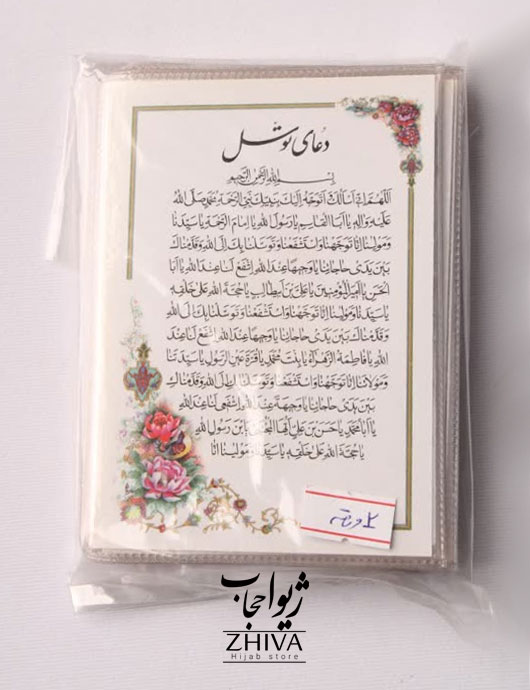 دعای توسّل
بِسْمِ اللهِ الرَّحْمٰنِ الرَّحیمِ
اَللّٰهُمَّ اِنّی اَسْاَلُكَ وَاَتَوَجَّهُ اِلَیْكَ بِنَبِیِّكَ نَبِیِّ الرَّحْمَةِ مُحَمَّدٍ صَلَّی اللهُ
عَلَیْهِ وَالِهِ یا اَبَا الْقاسِمِ یا رَسُولَ اللهِ یا اِمامَ الرَّحْمَةِ یا سَیِّدَنا
وَمَوْلینا اِنّا تَوَجَّهْنا وَاسْتَشْفَعْنا وَتَوَسَّلْنا بِكَ اِلَی اللهِ وَقَدَّمْناكَ
بَیْنَ یَدَیْ حاجاتِنا یا وَجیهاً عِنْدَ اللهِ اِشْفَعْ لَنا عِنْدَ اللهِ یا اَبَا
الْحَسَنِ یا اَمیرَ الْمُؤْمِنینَ یا عَلِیَّ بْنَ اَبیطالِبٍ یا حُجَّةَ اللهِ عَلی خَلْقِهِ
یا سَیِّدَنا وَمَوْلینا اِنّا تَوَجَّهْنا وَاسْتَشْفَعْنا وَتَوَسَّلْنا بِكَ اِلَی اللهِ
وَقَدَّمْناكَ بَیْنَ یَدَیْ حاجاتِنا یا وَجیهاً عِنْدَ اللهِ اِشْفَعْ لَنا عِنْدَ
اللهِ یا فاطِمَةُ الزَّهْراَّءُ یا بِنْتَ مُحَمَّدٍ یا قُرَّةَ عَیْنِ الرَّسُولِ یا سَیِّدَتَنا
وَمَوْلاتَنا اِنّا تَوَجَّهْنا وَاسْتَشْفَعْنا وَتَوَسَّلْنا بِكِ اِلَی اللهِ وَقَدَّمْناكِ
بَیْنَ یَدَیْ حاجاتِنا یا وَجیهَةً عِنْدَ اللهِ اِشْفَعی لَنا عِنْدَ اللهِ
یا اَبا مُحَمَّدٍ یا حَسَنَ بْنَ عَلِیٍّ اَیُّهَا الْمُجْتَبی یَا بْنَ رَسُولِ اللهِ
یا حُجَّةَ اللهِ عَلی خَلْقِهِ یا سَیِّدَنا وَمَوْلینا اِنّا
ژیوا حجاب
ZHIVA
Hijab store